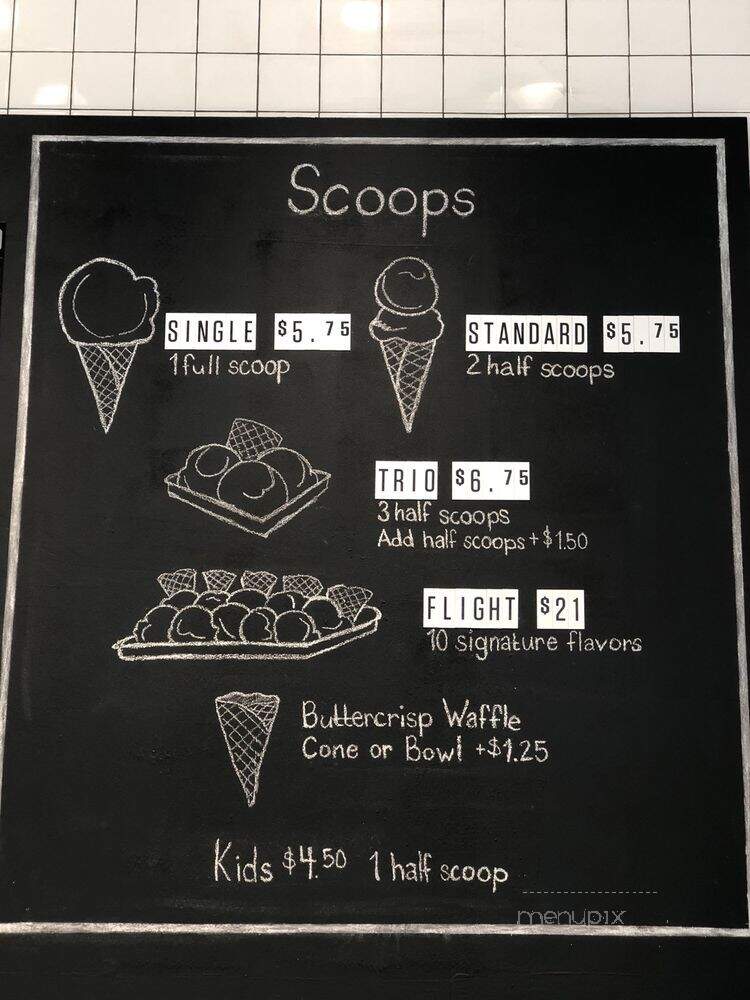 Scoops
SINGLE $5.75
1 full scoop
STANDARD $5.75
2 half scoops
TRIO $6.75
3 half scoops
Add half scoops +$1.50
FLIGHT $21
10 signature flavors
Buttercrisp Waffle
Cone or Bowl +$1.25
Kids $4.50 1 half scoop
menupix